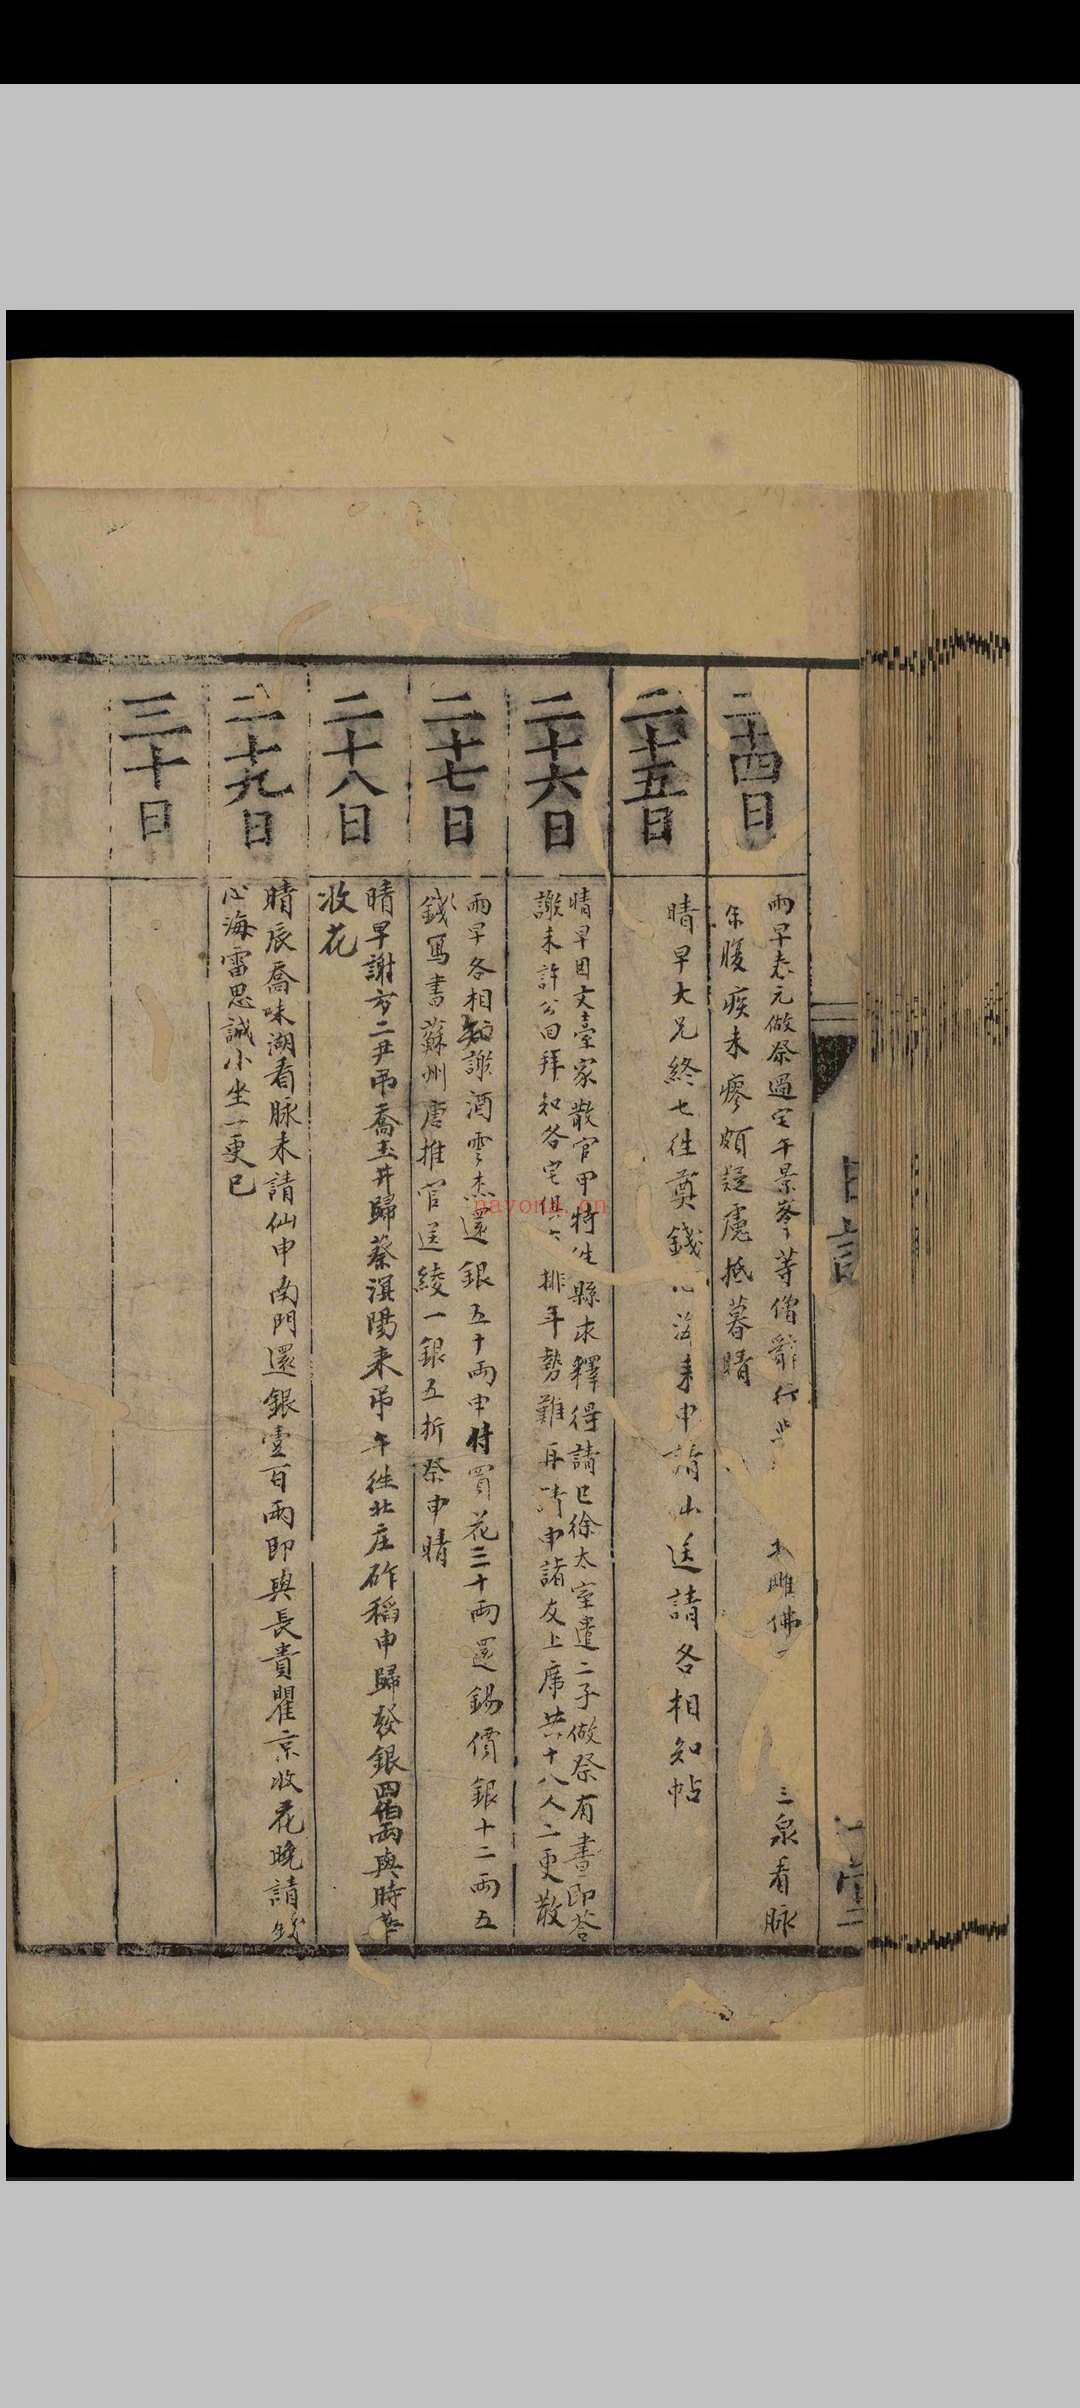 日記
二十四日
雨早袁元做祭過宅午景峯等僧辭行
雕佛
三泉看脉
余腹疾未瘳頗疑慮抵暮晴
二十五日
晴早大兄終七往奠錢
海来申請小送請各相知帖
二十六日
晴早因文臺家散官甲特往縣求釋得請巳徐太室遣二子做祭有書即荅
謝未許公回拜知各宅俱
排年勢難再請申諸友上席共十八人二更散
二十七日
雨早各相知謝酒雲杰還銀五十兩申付買花三十兩還錫價銀十二兩五
錢寫書蘇州唐推官送綾一銀五折祭申晴
二十八日
晴早謝方二尹吊喬玉井歸蔡淇陽来吊午往北庄斫稻申歸發銀四伯兩與時華
收花
二十九日
晴辰喬味湖看脉未請仙申南門還銀壹百兩即與長貴瞿京收花晚請錢
心海雷思誠小坐一更已
三十日
nayona.cn